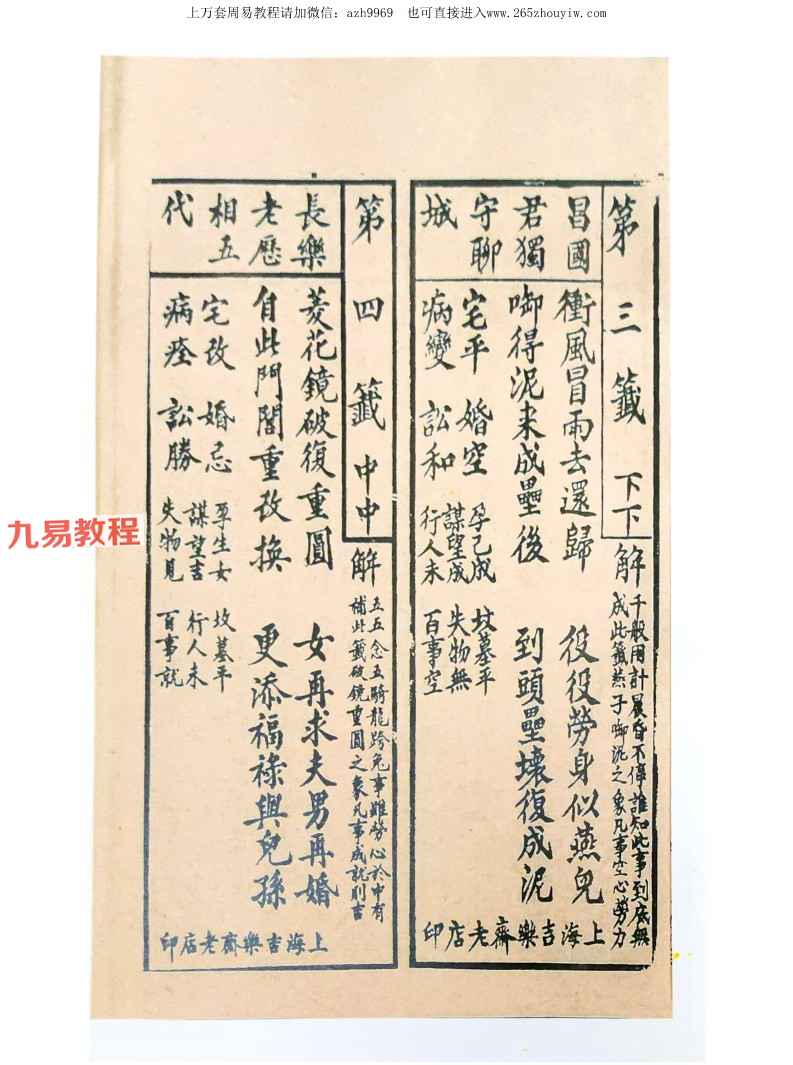 上万套周易教程请加微信：azh9969 也可直接进入www.265zhouyiw.com
第三籤 下下
解 千般用計晨昏不停誰知此事到底無
成此籤燕子啣泥之象凡事空心勞力
昌國
君獨
守聊
城
衝風冒雨去還歸 役役勞身似燕兒
啣得泥来成壘後 到頭壘壞復成泥
宅平 婚空 孕已成 坟墓平
謀望成 失物無
病變 訟和 行人未 百事空
上海吉樂齋老店印
第四籤 中中
解 五五念五騎龍跨兔事雖勞心於中有
補此籤破鏡重圓之象凡事成就則吉
長樂
老歷
相五
代
菱花鏡破復重圓 女再求夫男再婚
自此門閭重改換 更添福祿與兒孫
宅改 婚忌 孕生女 坟墓平
謀望吉 行人未
病痊 訟勝 失物見 百事就
上海吉樂齋老店印
九易教程